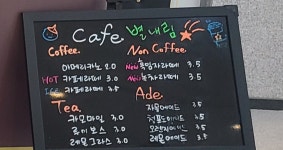 Cafe 별내림
Coffee
아메리카노 2.0
HOT 카페라떼 3.0
ICE 카페라떼 3.5
Non Coffee
New 흑임자라떼 3.5
녹차라떼 3.5
Tea
카모마일 3.0
루이보스 3.0
레몬그라스 3.0
Ade
자몽에이드 3.5
청포도에이드 3.5
오렌지에이드 3.5
레몬에이드 3.5